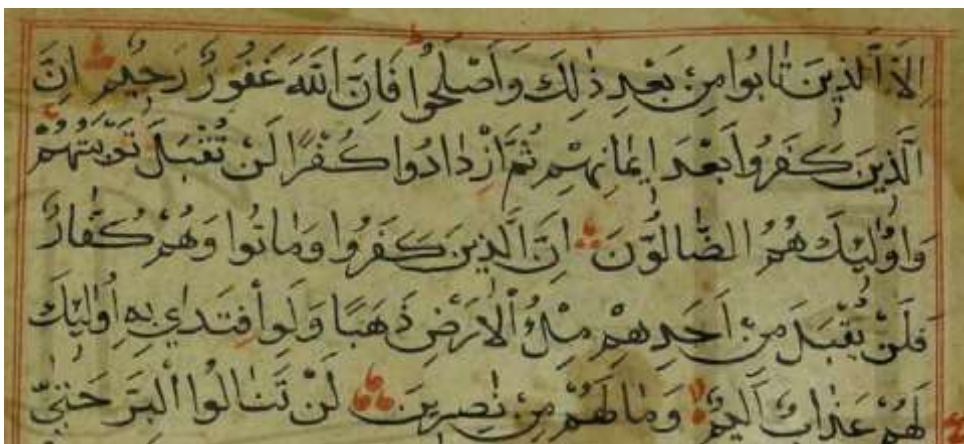 اِلاَّ الَّذِينَ تَابُوا مِنْ بَعْدِ ذٰلِكَ وَاَصْلَحُوا فَاِنَّ اللّٰهَ غَفُورٌ رَحِيمٌ اِنَّ
الَّذِينَ كَفَرُوا بَعْدَ اِيمٰانِهِمْ ثُمَّ ازْدٰادُوا كُفْرًا لَنْ تُقْبَلَ تَوْبَتُهُمْ
وَاُولٰئِكَ هُمُ الضَّالُّونَ اِنَّ الَّذِينَ كَفَرُوا وَمٰاتُوا وَهُمْ كُفّٰارٌ
فَلَنْ يُقْبَلَ مِنْ اَحَدِهِمْ مِلْءُ الْاَرْضِ ذَهَبًا وَلَوِ افْتَدٰي بِهِ اُولٰئِكَ
لَهُمْ عَذٰابٌ اَلِيمٌ وَمٰا لَهُمْ مِنْ نٰصِرِينَ لَنْ تَنٰالُوا الْبِرَّ حَتّٰي